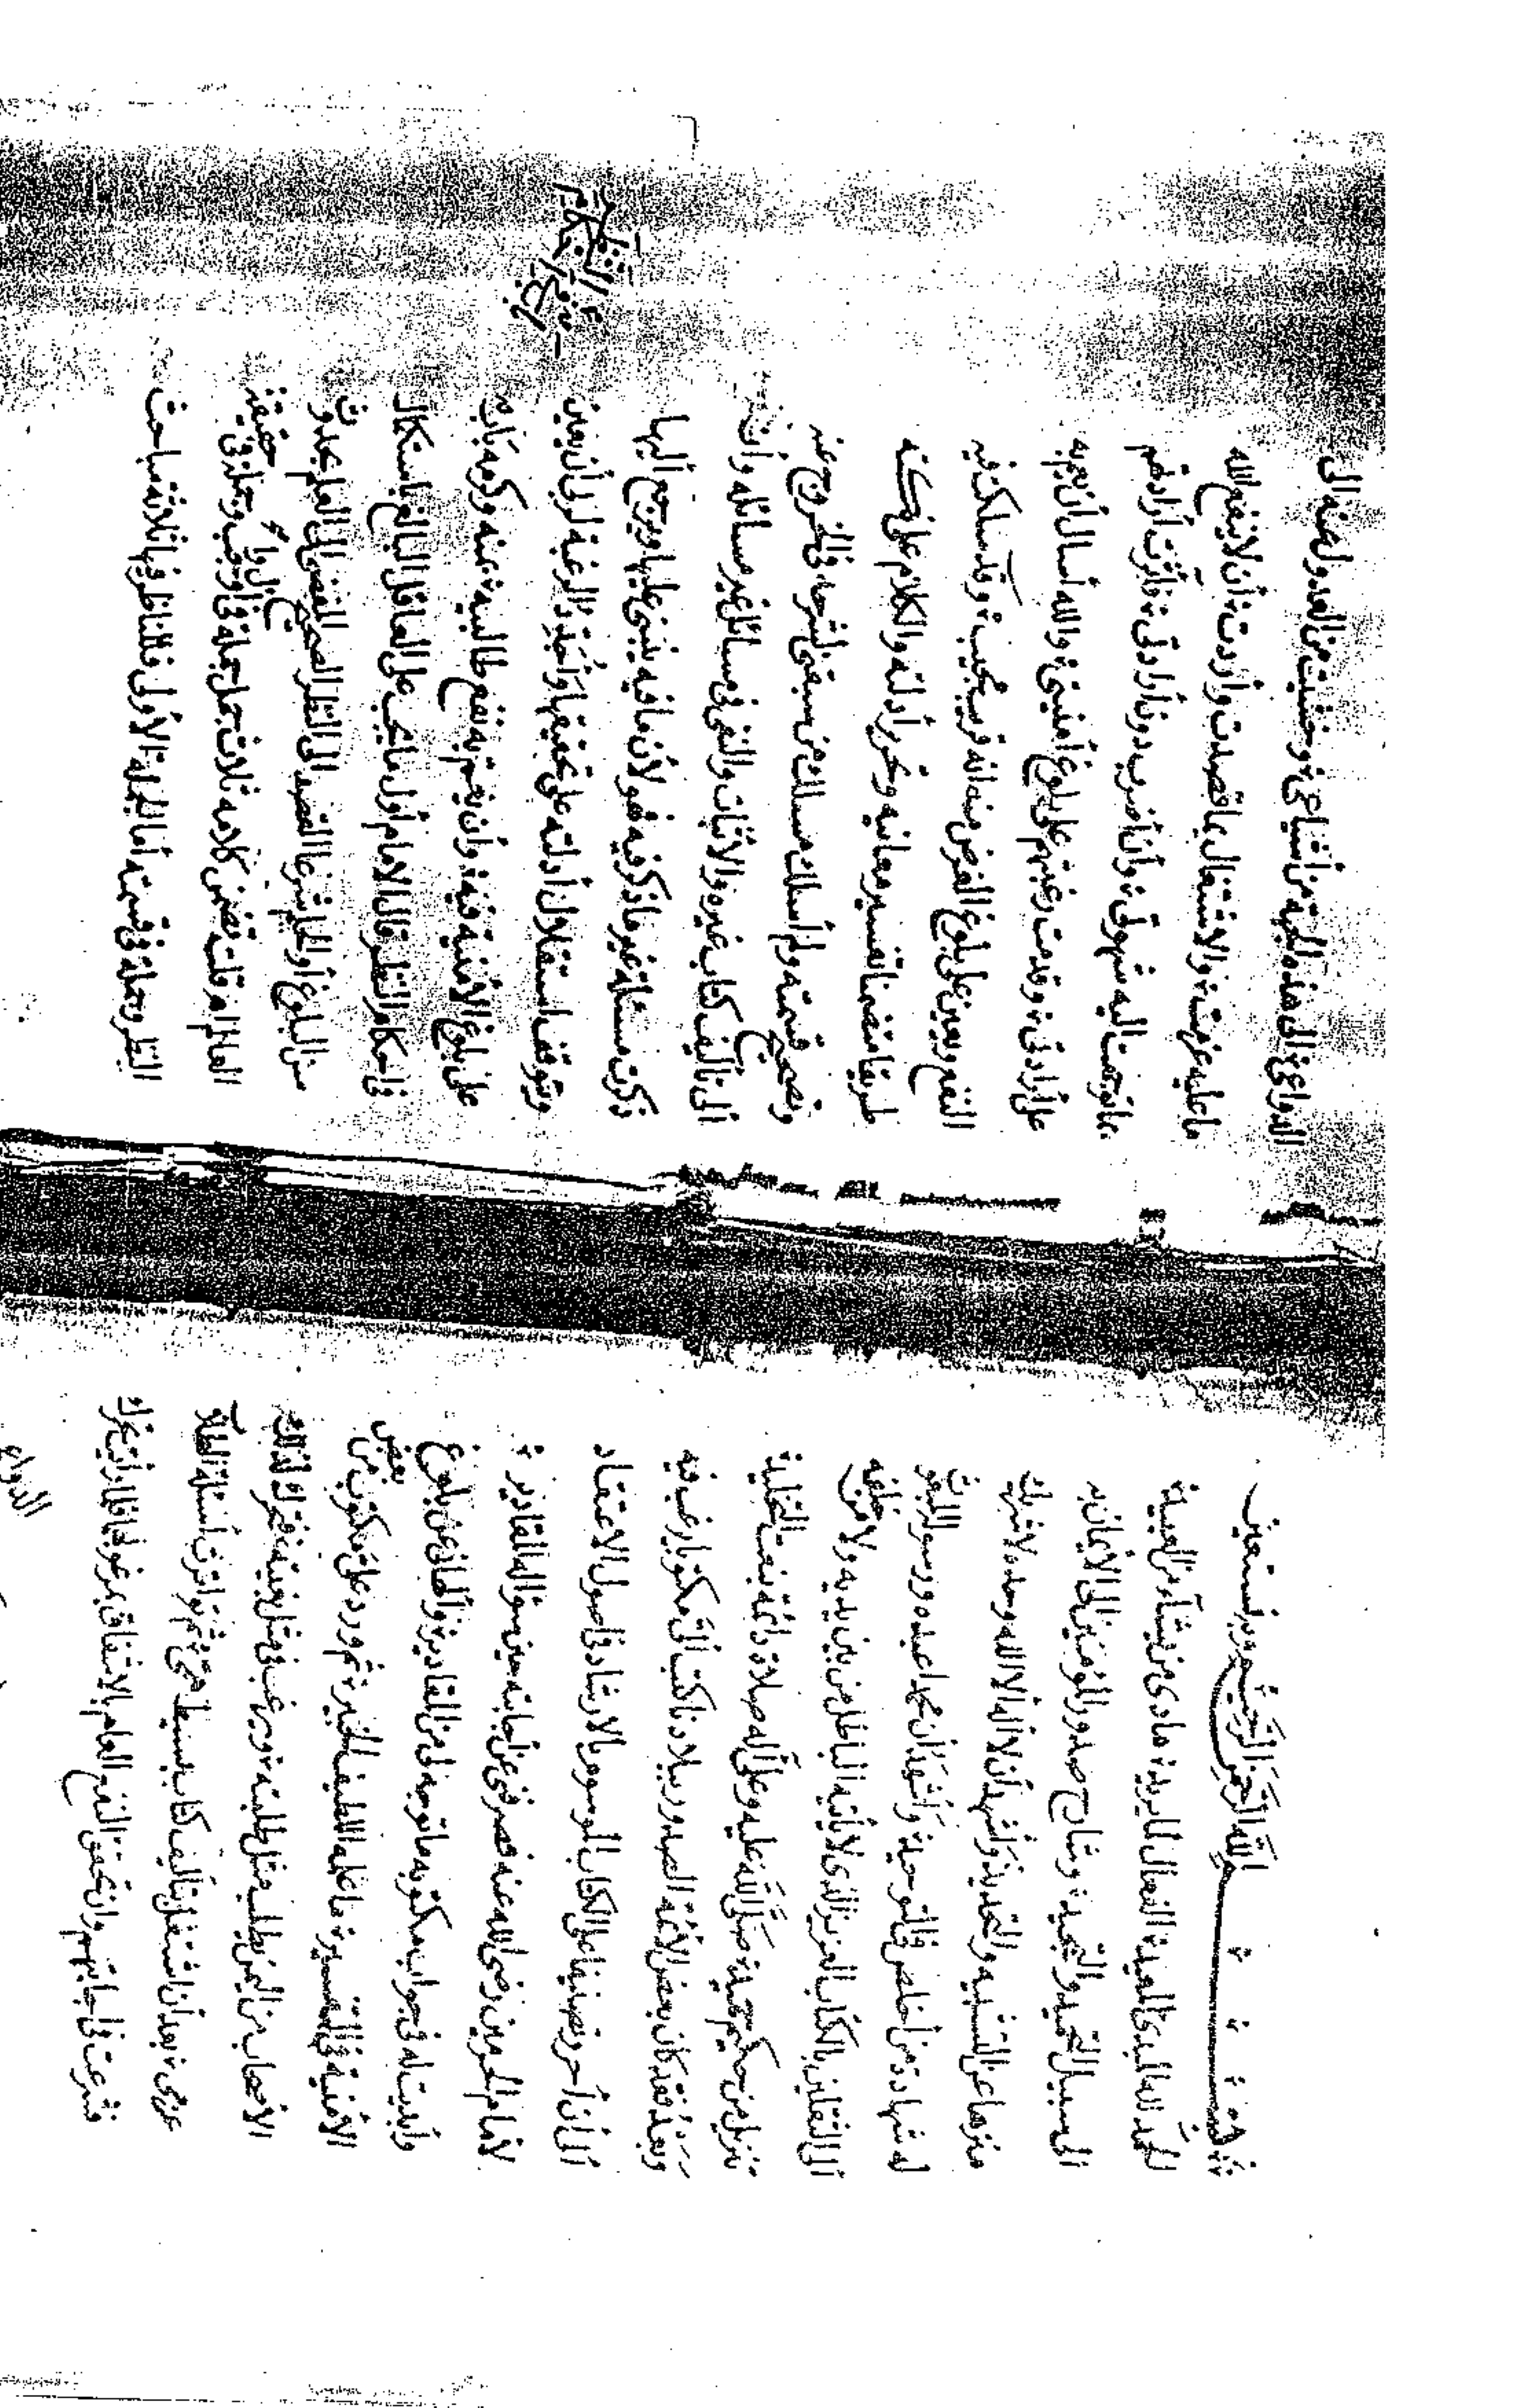 بسم الله الرحمن الرحيم وبه نستعين
الحمد لله المبدئ المعيد الفعال لما يريد هادى من يشآء من العبيد
الى سبيل التحميد والتمجيد وشارح صدور المؤمنين الى الايمان به
منزها عن التشبيه والتحديد وأشهد أن لا اله الا الله وحده لا شريك
له شهادة من أخلص فى التوحيد وأشهد أن محمدا عبده ورسوله المبعوث
الى الثقلين بالكتاب العزيز الذى لا يأتيه الباطل من بين يديه ولا من خلفه
تنزيل من حكيم حميد صلى الله عليه وعلى آله صلاة دائمة بنعت التخليد
وبعد فقد كان بعض الأئمة الصدور ببلادنا كتب الىّ مكتوبا رغب فيه
الى أن أحرر تصنيفا على الكتاب الموسوم بالارشاد فى اصول الاعتقاد
لامام الحرمين رضى الله عنه فصرفنى عن اجابته حين سؤاله المقادير
وأبديت له فى جواب مكتوبه ما توجه لى من المعاذير وألهانى عن بلوغ
الأمنية فى التفسير ما علمه اللطيف الخبير ثم ورد علىّ مكتوب من بعض
الأصحاب من اليمن يطلب مثل طلبته ويرغب فى مثل رغبته فتحرك لذلك
عزمى بعد أن اشتغل بتأليف كتاب بسيط همى ثم تواترت أسئلة الطلاب
فشرعت فى اجابتهم وان تحقق النفع العام بمرغوبها فلما رأيت تحرك
الدواعى
الدواعى الى هذه الجهة من أشياعى وخشيت من العدول عنه الى
ما عليه عزمت والاشتغال بما قصدت وأردت أن لا ينفع الله
بما توجهت اليه شهوتى وأن أضر بدون ارادتى فآثرت ارادتهم
على ارادتى وقدمت رغبتهم على بلوغ أمنيتى والله أسأل أن يعم به
النفع ويعين على بلوغ الغرض منه انه قريب مجيب وقد سلكت فيه
طريقا متضمنا تفسير معانيه وتحرير أدلته والكلام على نكته
وتصحيح قسمته ولم أسلك مسلك من سبقنى لشرحه فى الخروج عنه
الى تأليف كتاب غيره والاثبات والنفى فى مسائل غير مسائله وان
ذكرت مسئلة غير ما ذكر فيه فهو لأن ما فيه ينبنى عليها ويرجع اليها
ويتوقف استقلال أدلته على تحقيقها والحمد والرغبة لربى أن يعين
على بلوغ الأمنية فيه وأن يعم به نفع طالبيه بمنه وكرمه باب
فى أحكام النظر قال الامام أول ما يجب على العاقل البالغ باستكمال
سن البلوغ أو الحلم شرعا القصد الى النظر الصحيح المفضى الى العلم بحدوث
العالم قلت تضمن كلامه ثلاث جمل جملة فى أول واجب وجملة فى حقيقة
النظر وجملة فى قسمته أما الجملة الأولى فللناظر فيها ثلاثة مباحث